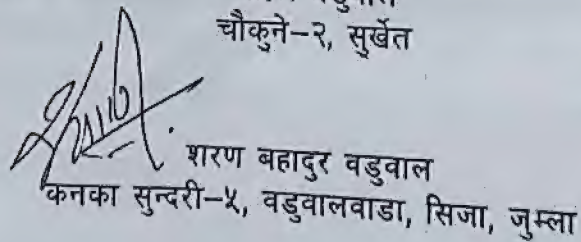 चौकुने–२, सुर्खेत
शरण बहादुर वडुवाल
कनका सुन्दरी–५, वडुवालवाडा, सिजा, जुम्ला